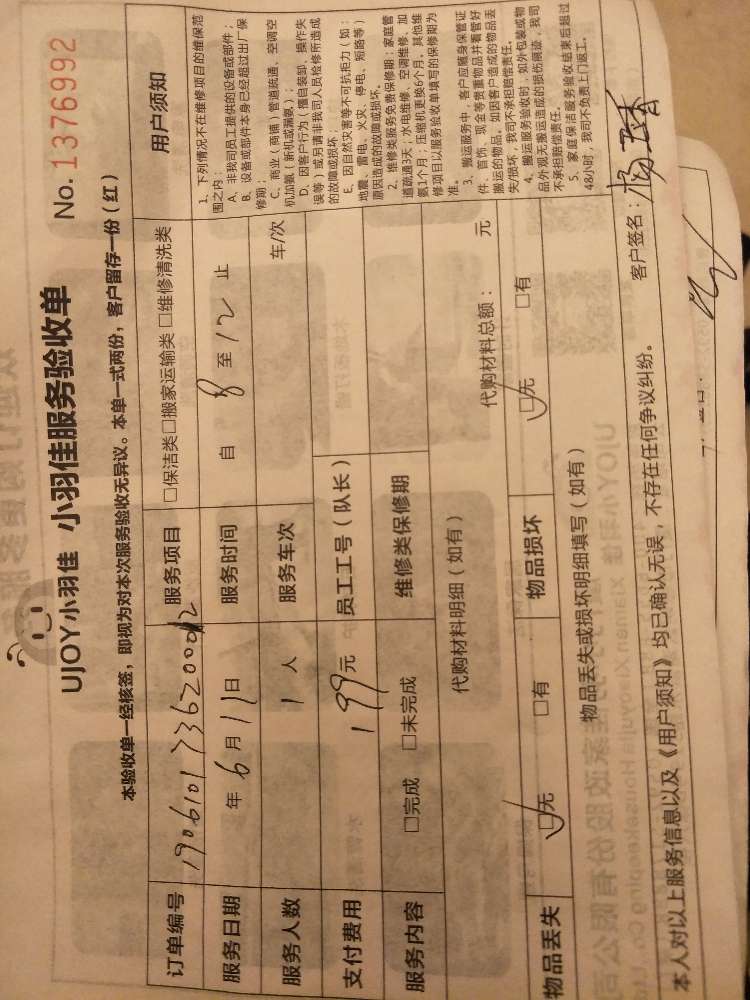 UJOY小羽佳 小羽佳服务验收单 No. 1376992
本验收单一经核签，即视为对本次服务验收无异议。本单一式两份，客户留存一份（红）
订单编号 190610173620002 服务项目 □保洁类□搬家运输类 □维修清洗类
服务日期 年 6 月 11 日 服务时间 自 8 至 12 止
服务人数 1 人 服务车次 车/次
支付费用 199元 员工工号（队长）
服务内容 □完成 □未完成 维修类保修期
代购材料明细（如有） 代购材料总额： 元
物品丢失 □无 □有 物品损坏 □无 □有
物品丢失或损坏明细填写（如有）
用户须知
1、下列情况不在维修项目的维保范
围之内：
A、非我司员工提供的设备或部件；
B、设备或部件本身已经超过出厂保
修期；
C、商业（商铺）管道疏通、空调空
机加氨（新机或漏氨）；
D、因客户行为（擅自装卸、操作失
误等）或另请非我司人员检修所造成
的故障或损坏
E、因自然灾害等不可抗拒力（如：
地震、雷电、火灾、停电、短路等）
原因造成的故障或损坏。
2、维修类服务免费保修期：家庭管
道疏通3天；水电维修、空调维修、加
氨1个月；压缩机更换6个月，其他维
修项目以服务验收单填写的保修期为
准。
3、搬运服务中，客户应随身保管证
件、首饰、现金等贵重物品并看管好
搬运的物品。如因客户造成的物品丢
失/损坏，我司不承担赔偿责任。
4、搬运服务验收时，如外包装或物
品外观无搬运造成的损伤痕迹，我司
不承担赔偿责任。
5、家庭保洁服务验收结束后超过
48小时，我司不负责上门返工。
本人对以上服务信息以及《用户须知》均已确认无误，不存在任何争议纠纷。 客户签名：